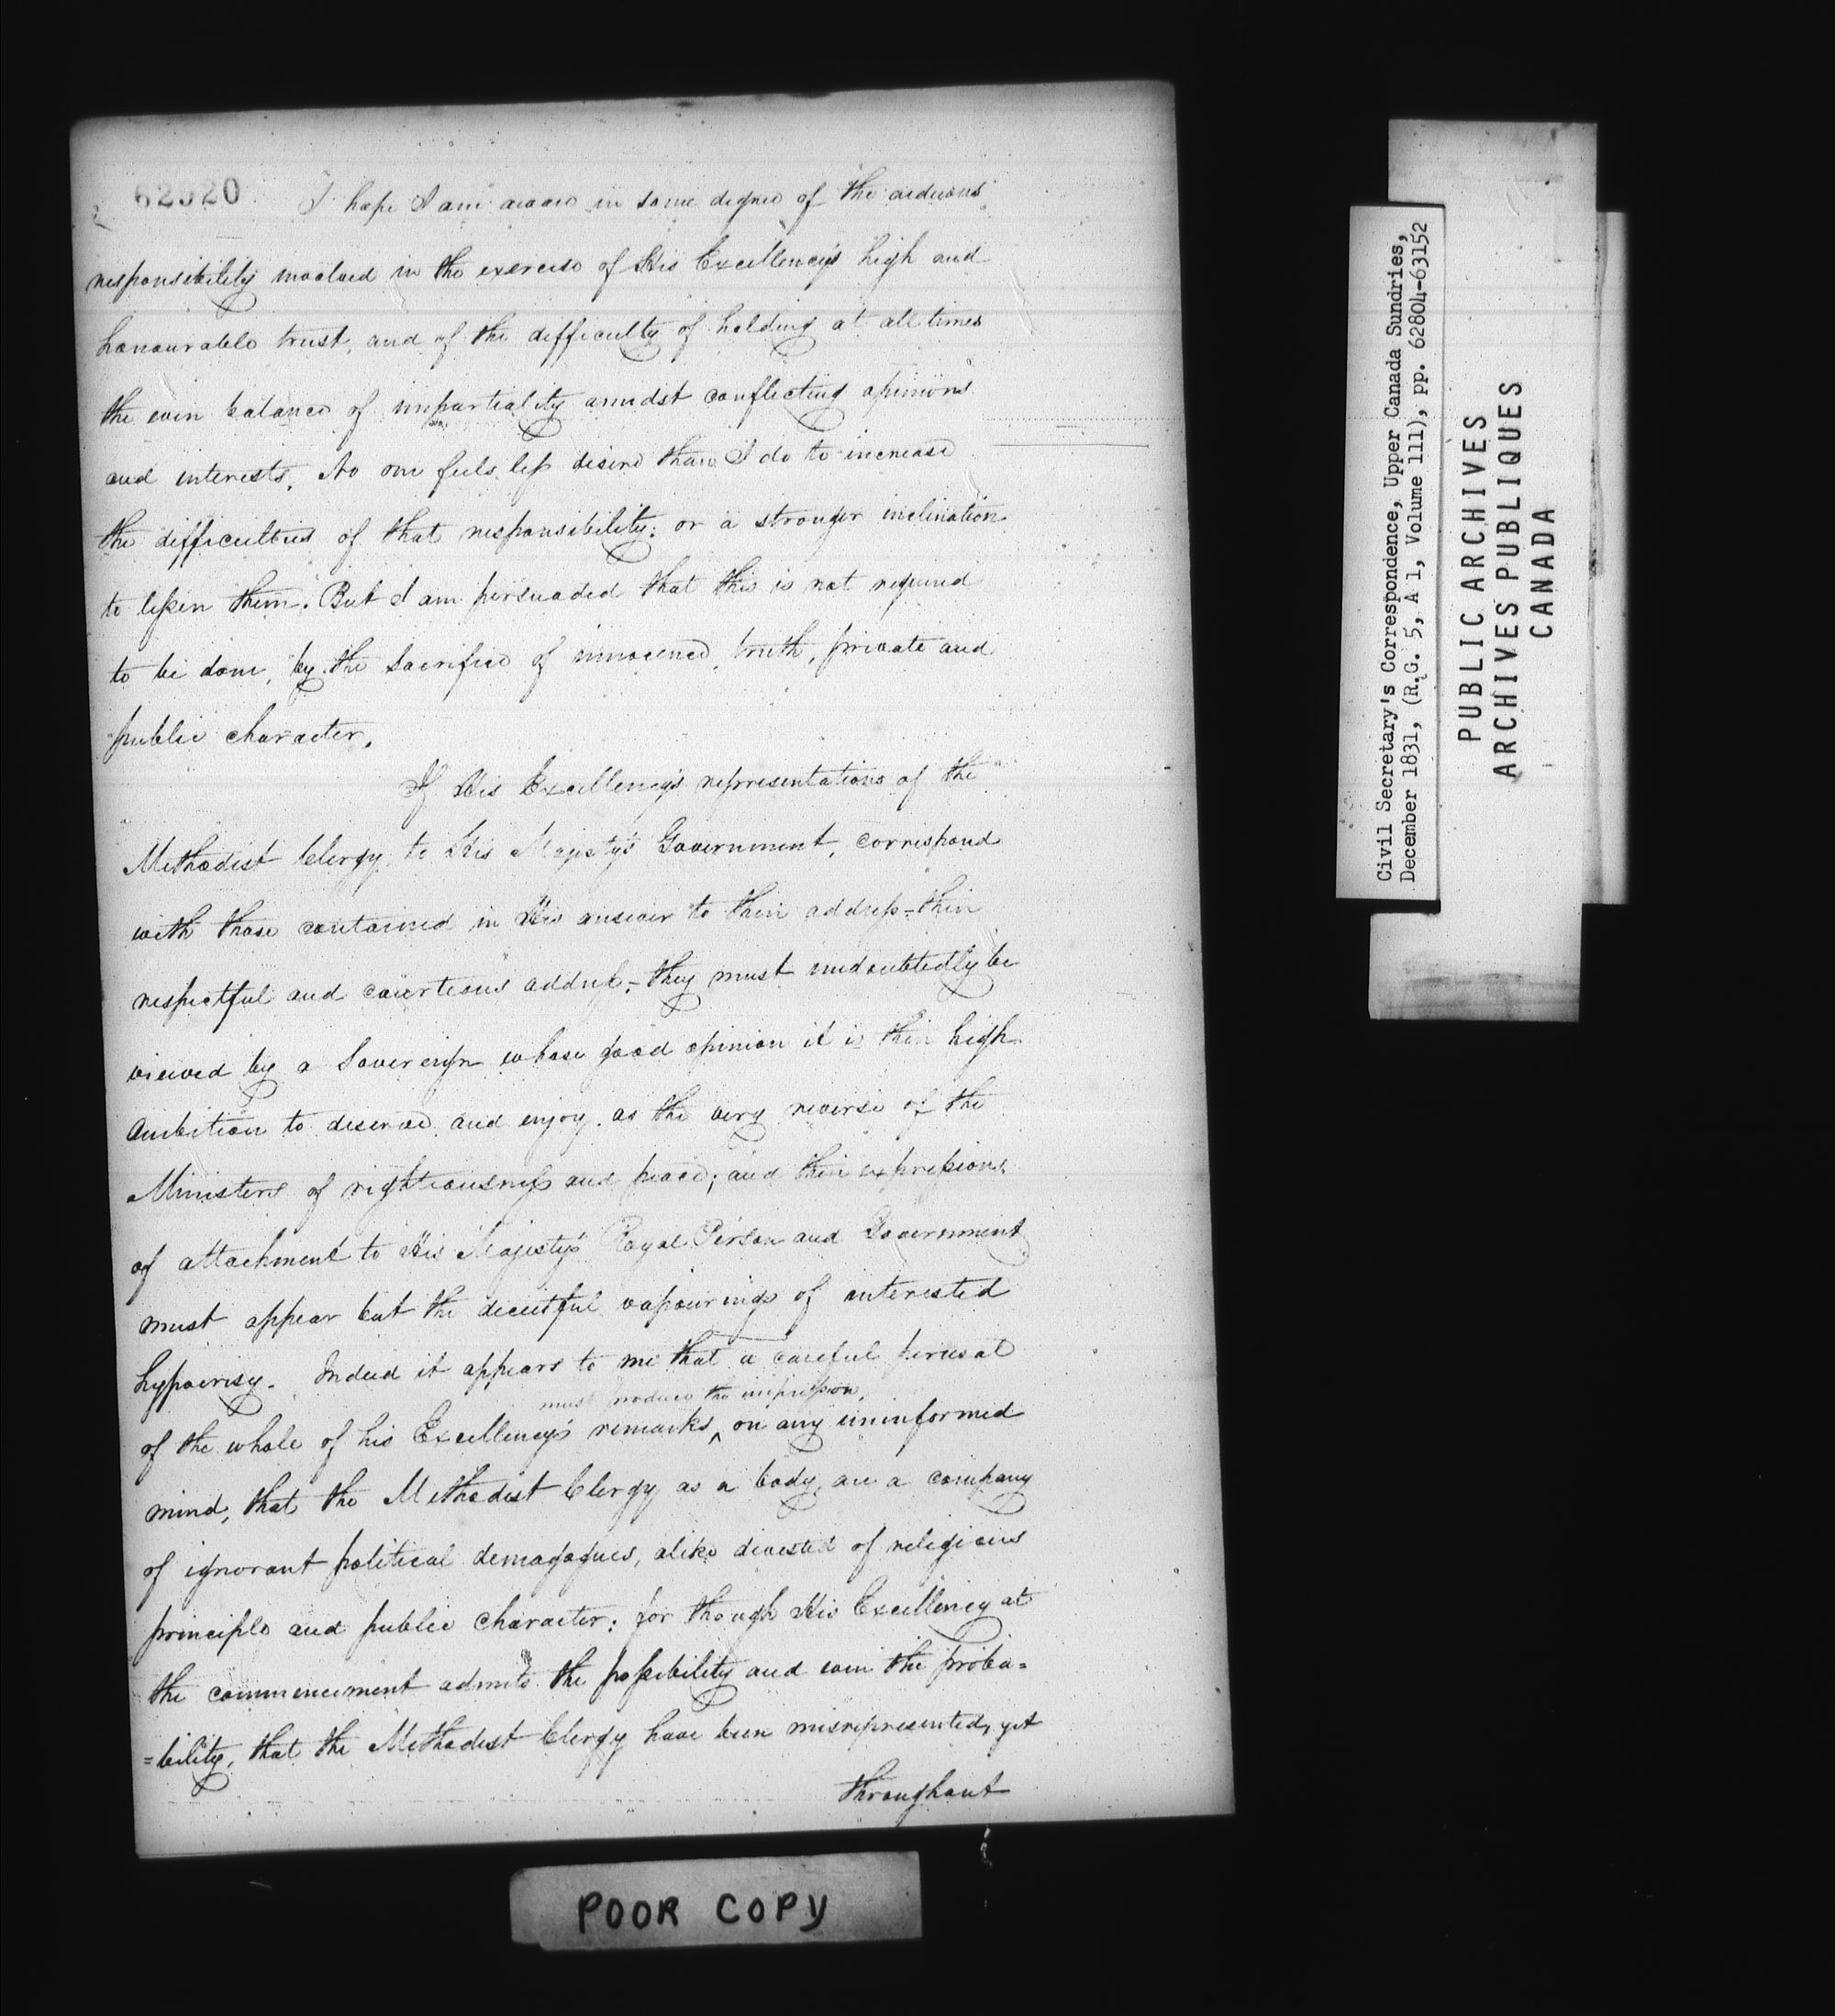 62920
I hope I am aware in some degree of the arduous
responsibility involved in the exercise of His Excellency's high and
honourable trust, and of the difficulty of holding at all times
the even balance of impartiality amidst conflicting opinions
and interests. No one feels less desire than I do to increase
the difficulties of that responsibility: or a stronger inclination
to lessen them. But I am persuaded that this is not required
to be done, by the sacrifice of innocence, truth, private and
public character.
If His Excellency's representations of the
Methodist Clergy, to His Majesty's Government, correspond
with those contained in His answer to their address - their
respectful and courteous address, - they must undoubtedly be
viewed by a Sovereign whose good opinion it is their high
ambition to deserve and enjoy, as the very reverse of the
Ministers of righteousness and peace; and their expressions
of attachment to His Majesty's Royal Person and Government
must appear but the deceitful vapourings of interested
hypocrisy. Indeed it appears to me that a careful perusal
must produce the impression,
of the whole of his Excellency's remarks ^ on any uninformed
mind, that the Methodist Clergy as a body, are a company
of ignorant political demagogues, alike divested of religious
principle and public character: for though His Excellency at
the commencement admits the possibility and even the proba=
=bility, that the Methodist Clergy have been misrepresented, yet
throughout
POOR COPY
Civil Secretary's Correspondence, Upper Canada Sundries,
December 1831, (R.G. 5, A 1, Volume 111), pp. 62804-63152
PUBLIC ARCHIVES
ARCHIVES PUBLIQUES
CANADA